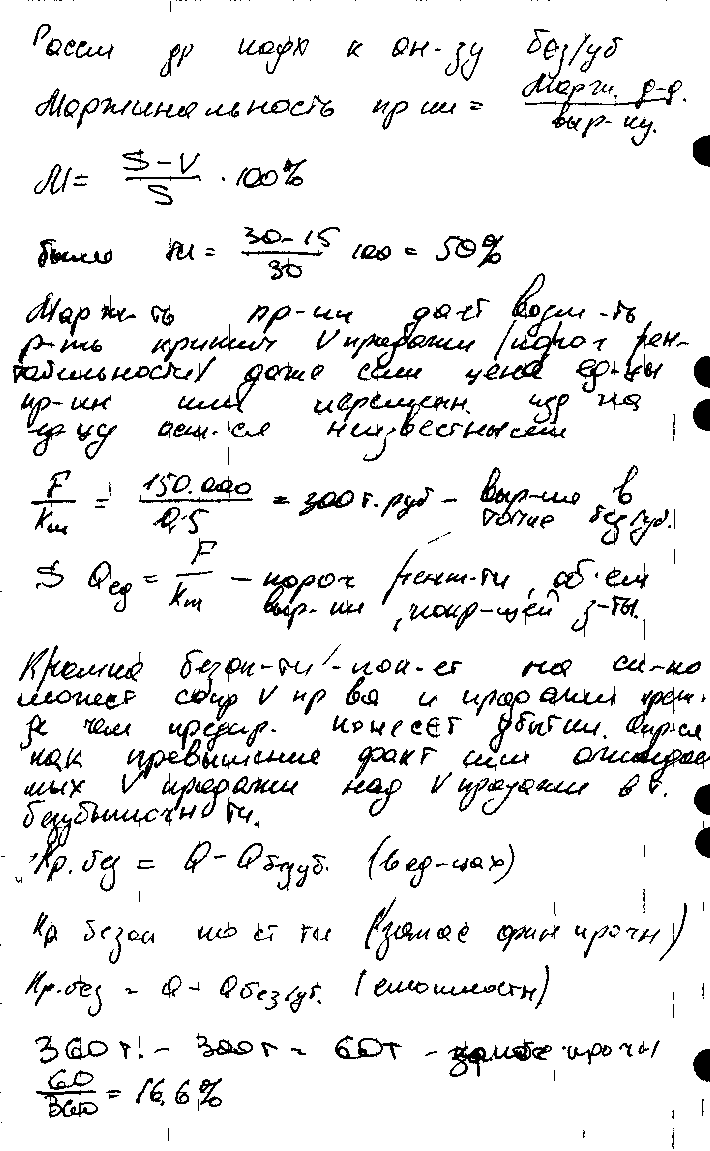 Рассм др подх к ан-зу без/уб
Маржинальность пр-ии = Марж. д-д. / выр-ку.
M = S-V / S · 100%
было m = 30-15 / 30 100 = 50%
Марж-ть пр-ии дает возм-ть
р-ть критич V продажи (порог рен-
табильности) даже если цена ед-цы
пр-ии или перемен. изд на
ед-цу ост-ся неизвестными
F / Km = 150.000 / 0,5 = 300 т. руб - выр-ка в
точке без/уб.
S Qед = F / Km - порог рент-ти, объем
выр-ки, покр-щей з-ты.
Кромка безоп-ти - пок-ет на ск-ко
может сокр V пр-ва и продажи преж-
де чем предпр. понесет убытки. Опр-ся
как превышение факт или ожидае
мых V продажи над V продажи в т.
безубыточн-ти.
Кр.без = Q - Qбезуб. (в ед-цах)
Кр безоп ности (запас фин прочн)
Кр.без = Q - Qбез/уб. (стоимости)
360т. - 300т = 60т - запас прочн
60 / 360 = 16,6%